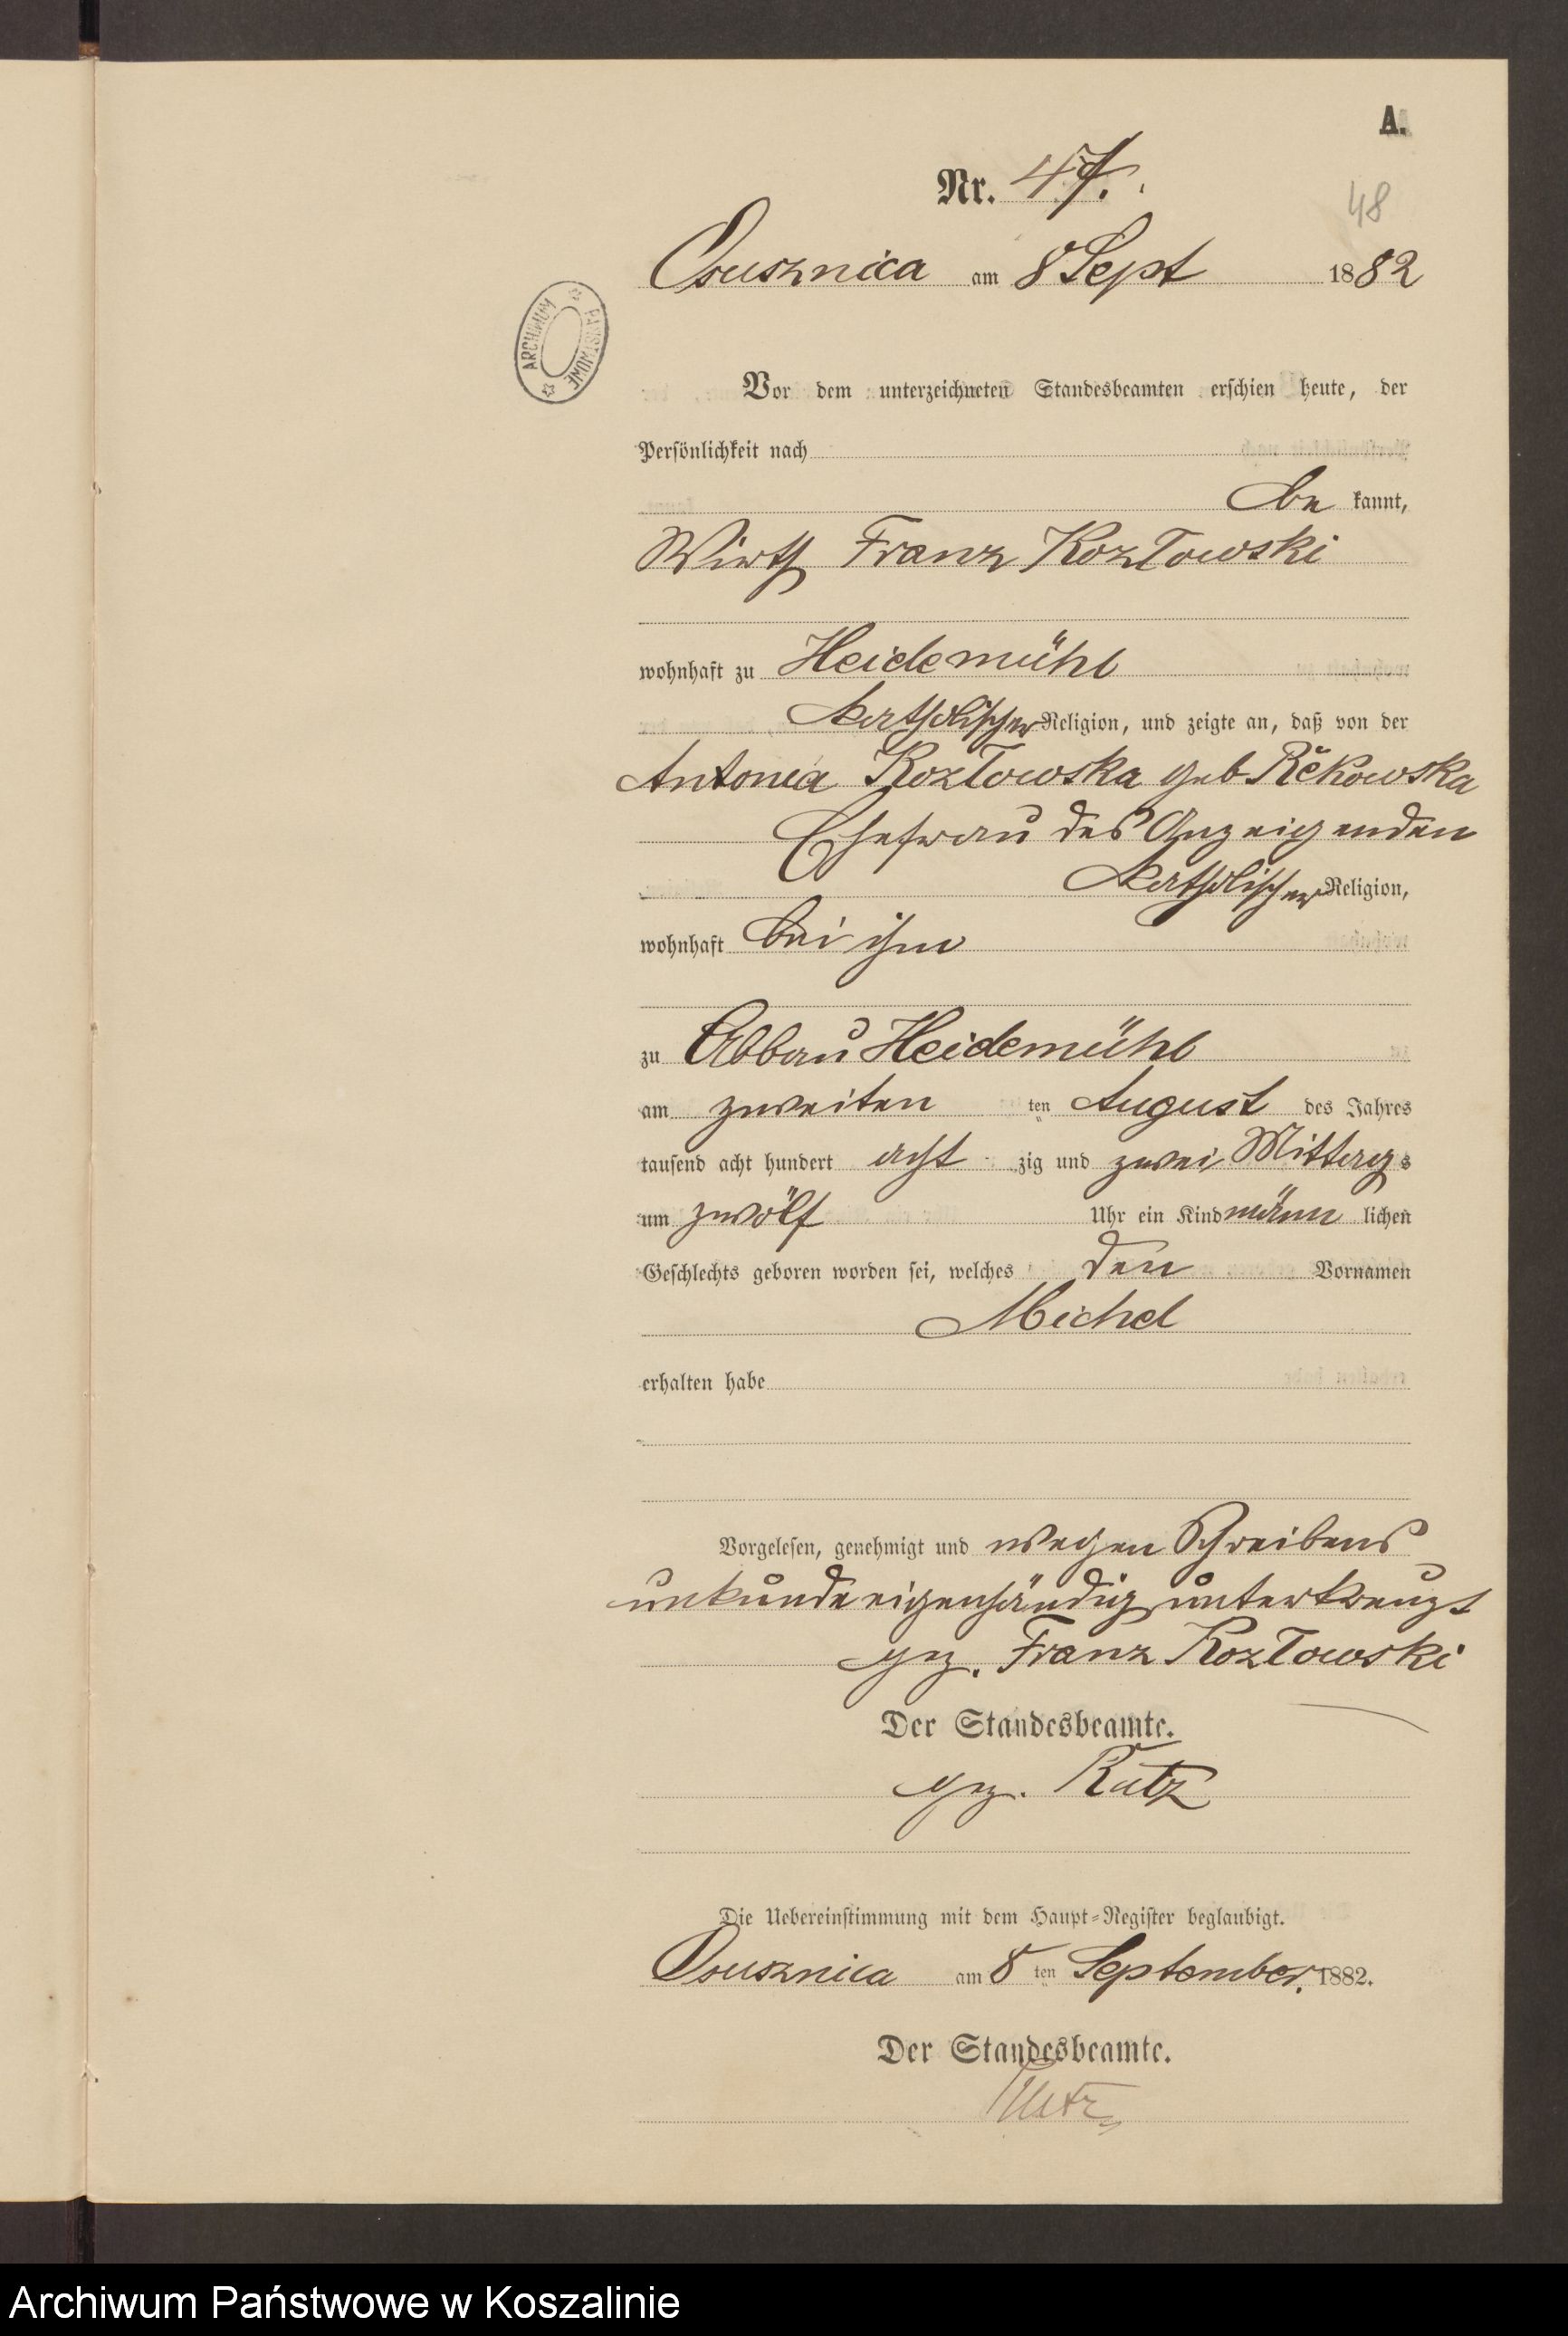 A.
Nr. 47.
48
Osusznica am 8 Sept 1882
ARCHIWUM PAŃSTWOWE
Vor dem unterzeichneten Standesbeamten erschien heute, der
Persönlichkeit nach
be kannt,
Wirth Franz Kozłowski
wohnhaft zu Heidemühl
katholischer Religion, und zeigte an, daß von der
Antonia Kozłowska geb Rĕkowska
Ehefrau des Anzeigenden
katholischer Religion,
wohnhaft bei ihm
zu Abbau Heidemühl
am zweiten ten August des Jahres
tausend acht hundert acht zig und zwei Mittags
um zwölf Uhr ein Kind männ lichen
Geschlechts geboren worden sei, welches den Vornamen
Michel
erhalten habe
Vorgelesen, genehmigt und wegen Schreibens
unkunde eigenhändig unterkreuzt
gez. Franz Kozłowski
Der Standesbeamte.
gez. Rutz
Die Uebereinstimmung mit dem Haupt-Register beglaubigt.
Osusznica am 8 ten September. 1882.
Der Standesbeamte.
Rutz
Archiwum Państwowe w Koszalinie